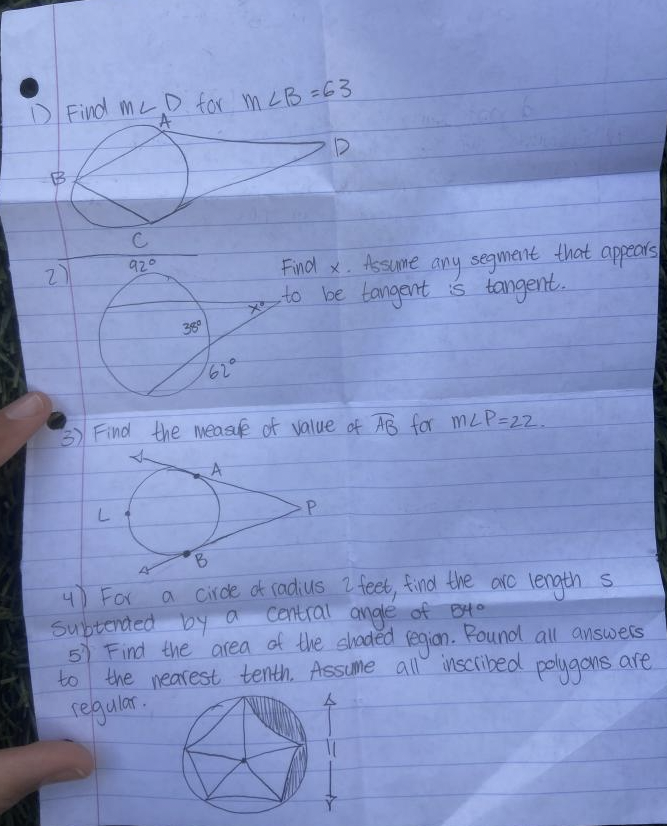 1) Find m∠D for m∠B=63
A
D
B
C
2)
92°
Find x. Assume any segment that appears
x°
to be tangent is tangent.
38°
62°
3) Find the measure of value of AB for m∠P=22.
A
L
P
B
4) For a circle of radius 2 feet, find the arc length s
subtended by a central angle of 84°
5) Find the area of the shaded region. Round all answers
to the nearest tenth. Assume all inscribed polygons are
regular.
11